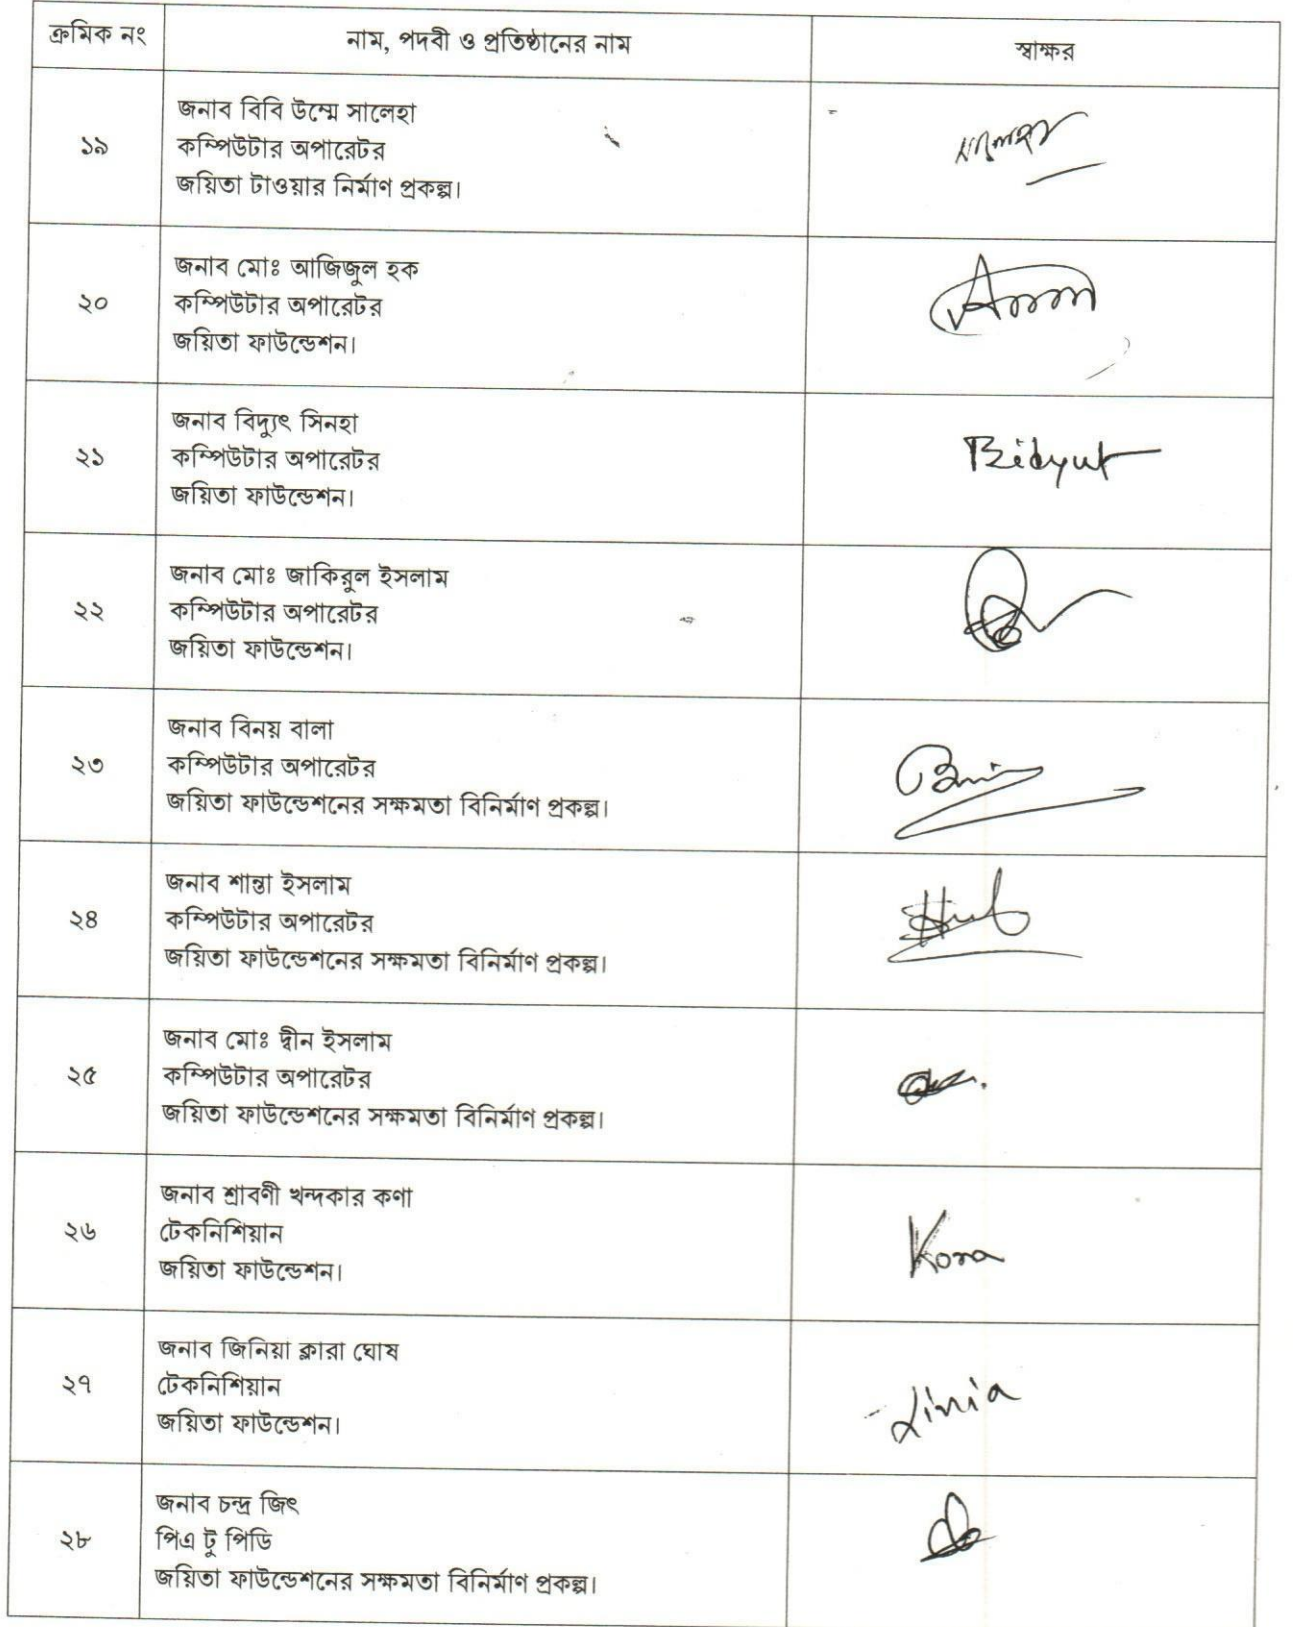 ক্রমিক নং নাম, পদবী ও প্রতিষ্ঠানের নাম স্বাক্ষর
জনাব বিবি উম্মে সালেহা
১৯ কম্পিউটার অপারেটর
জয়িতা টাওয়ার নির্মাণ প্রকল্প।
জনাব মোঃ আজিজুল হক
২০ কম্পিউটার অপারেটর
জয়িতা ফাউন্ডেশন।
জনাব বিদ্যুৎ সিনহা
২১ কম্পিউটার অপারেটর Bidyut
জয়িতা ফাউন্ডেশন।
জনাব মোঃ জাকিরুল ইসলাম
২২ কম্পিউটার অপারেটর
জয়িতা ফাউন্ডেশন।
জনাব বিনয় বালা
২৩ কম্পিউটার অপারেটর
জয়িতা ফাউন্ডেশনের সক্ষমতা বিনির্মাণ প্রকল্প।
জনাব শান্তা ইসলাম
২৪ কম্পিউটার অপারেটর
জয়িতা ফাউন্ডেশনের সক্ষমতা বিনির্মাণ প্রকল্প।
জনাব মোঃ দ্বীন ইসলাম
২৫ কম্পিউটার অপারেটর
জয়িতা ফাউন্ডেশনের সক্ষমতা বিনির্মাণ প্রকল্প।
জনাব শ্রাবণী খন্দকার কণা
২৬ টেকনিশিয়ান Kona
জয়িতা ফাউন্ডেশন।
জনাব জিনিয়া ক্লারা ঘোষ
২৭ টেকনিশিয়ান
জয়িতা ফাউন্ডেশন।
জনাব চন্দ্র জিৎ
২৮ পিএ টু পিডি
জয়িতা ফাউন্ডেশনের সক্ষমতা বিনির্মাণ প্রকল্প।